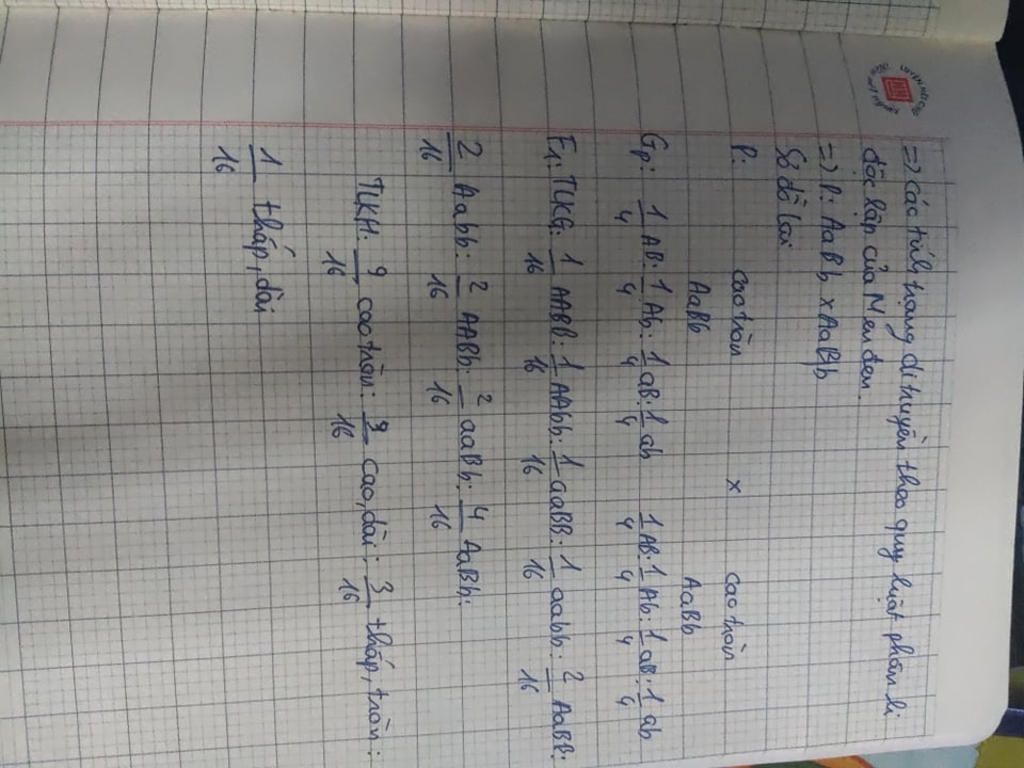 => Các tính trạng di truyền theo quy luật phân li
độc lập của Menđen.
=> P: AaBb x AaBb
Sơ đồ lai
P: cao tròn x cao tròn
AaBb AaBb
Gp: 1/4 AB: 1/4 Ab: 1/4 aB: 1/4 ab 1/4 AB: 1/4 Ab: 1/4 aB: 1/4 ab
F1: TLKG: 1/16 AABB: 1/16 AAbb: 1/16 aaBB: 1/16 aabb: 2/16 AaBB:
2/16 Aabb: 2/16 AABb: 2/16 aaBb: 4/16 AaBb:
TLKH: 9/16 cao tròn: 3/16 cao, dài: 3/16 thấp, tròn:
1/16 thấp, dài